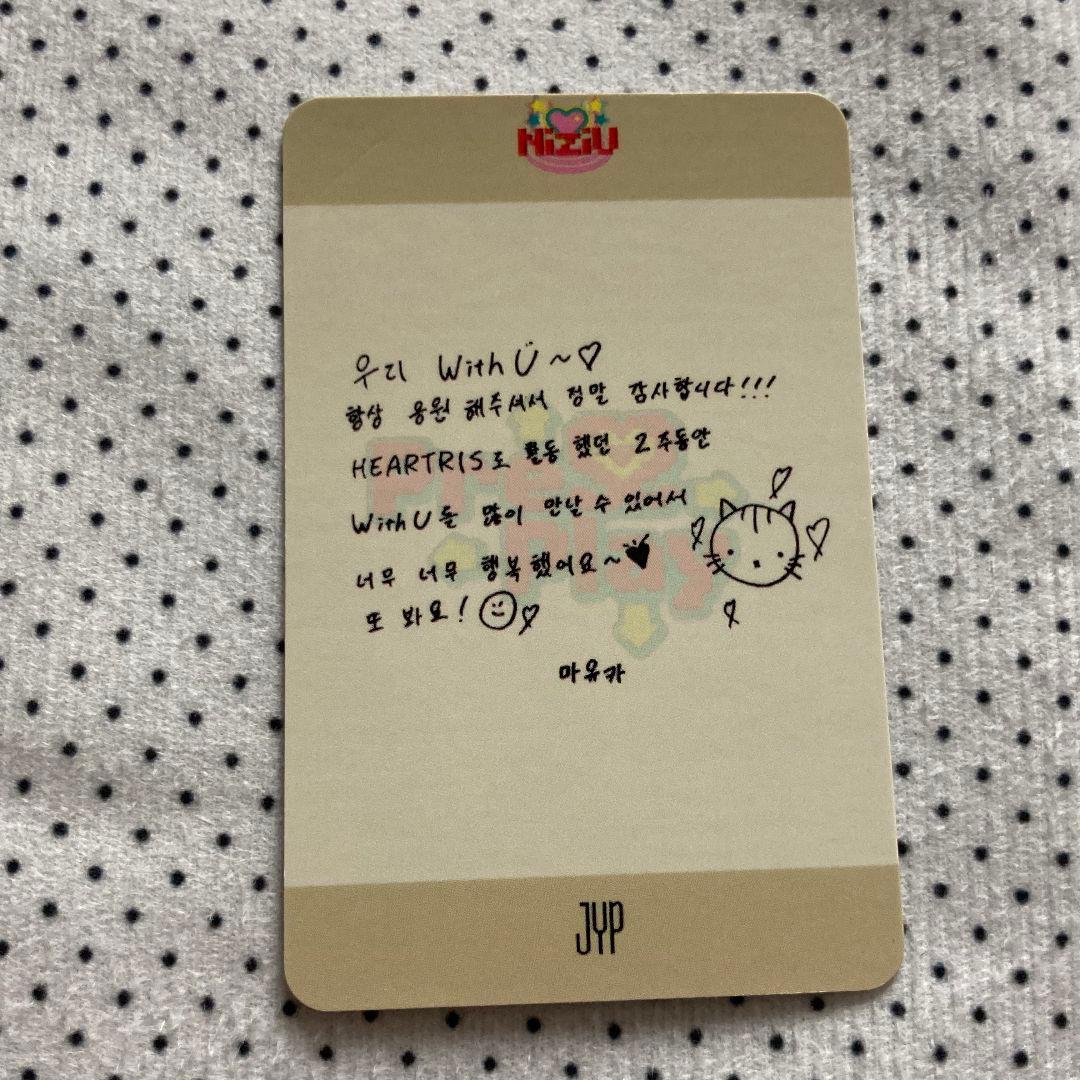 NiziU
우리 WithU~♡
항상 응원 해주셔서 정말 감사합니다!!!
HEARTRIS로 활동 했던 2주동안
WithU들 많이 만날 수 있어서
너무 너무 행복했어요~♥
또 봐요!
마유카
Pre♥play
JYP